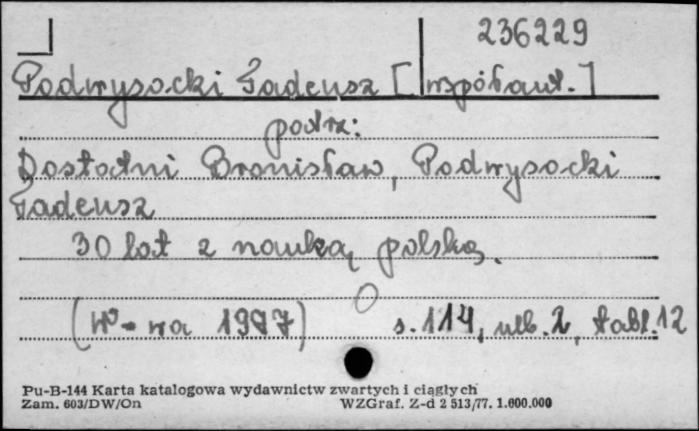 236229
Podwysocki Tadeusz [współaut.]
patrz:
Dostatni Bronisław, Podwysocki
Tadeusz
30 lat z nauką polską.
(W-wa 1977) s. 114, nlb. 2, tabl. 12
Pu-B-144 Karta katalogowa wydawnictw zwartych i ciągłych
Zam. 603/DW/On WZGraf. Z-d 2 513/77. 1.600.000